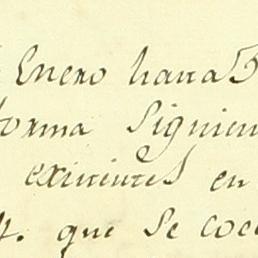 Enero hasta
forma siguien
existentes en
que se coc